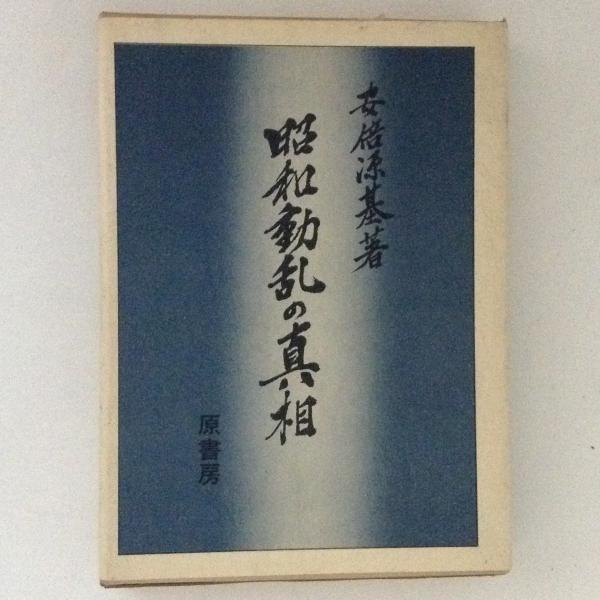 安倍源基著
昭和動乱の真相
原書房